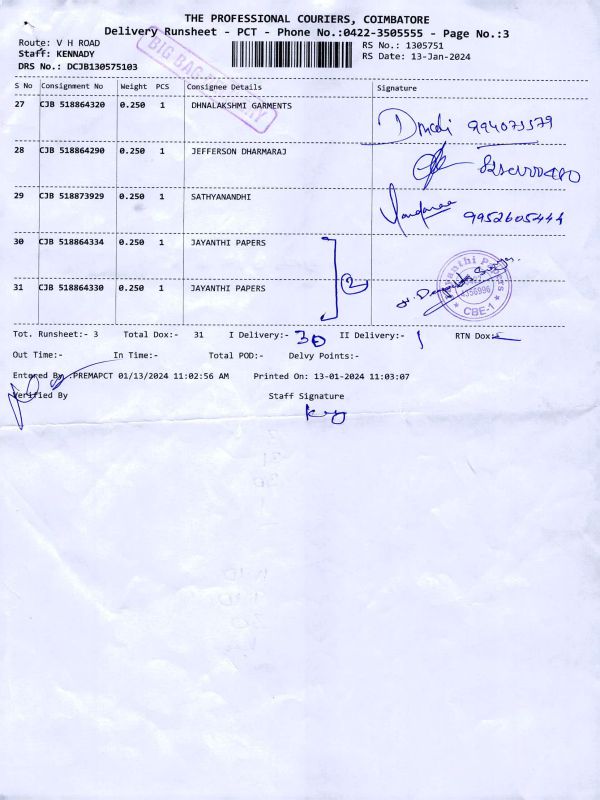 THE PROFESSIONAL COURIERS, COIMBATORE
Delivery Runsheet - PCT - Phone No.:0422-3505555 - Page No.:3
Route: V H ROAD
RS No.: 1305751
Staff: KENNADY
RS Date: 13-Jan-2024
DRS No.: DCJB130575103
BIG BAG
S No Consignment No Weight PCS Consignee Details Signature
27 CJB 518864320 0.250 1 DHNALAKSHMI GARMENTS
28 CJB 518864290 0.250 1 JEFFERSON DHARMARAJ
29 CJB 518873929 0.250 1 SATHYANANDHI
9952605444
30 CJB 518864334 0.250 1 JAYANTHI PAPERS
2
31 CJB 518864330 0.250 1 JAYANTHI PAPERS
Jayanthi Papers
CBE-1
Tot. Runsheet:- 3 Total Dox:- 31 I Delivery:- 30 II Delivery:- 1 RTN Dox:-
Out Time:- In Time:- Total POD:- Delvy Points:-
Entered By :PREMAPCT 01/13/2024 11:02:56 AM Printed On: 13-01-2024 11:03:07
Verified By Staff Signature